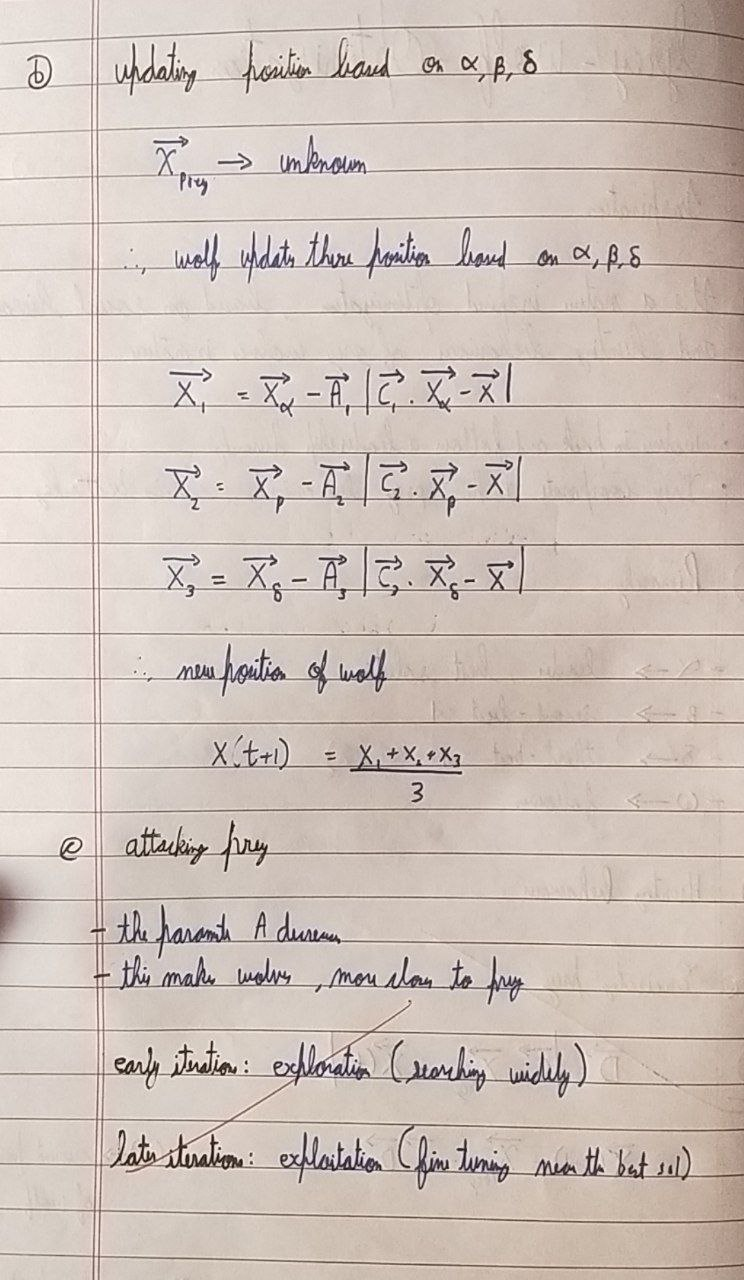 ⓑ updating position based on α, β, δ
X⃗prey → unknown
∴, wolf update there position based on α, β, δ
X⃗₁ = X⃗α - A⃗₁ |C⃗₁ . X⃗α - X⃗|
X⃗₂ = X⃗β - A⃗₂ |C⃗₂ . X⃗β - X⃗|
X⃗₃ = X⃗δ - A⃗₃ |C⃗₃ . X⃗δ - X⃗|
∴, new position of wolf
X(t+1) = X₁ + X₂ + X₃
3
ⓒ attacking prey
- the A decreases
- this make wolves, move close to prey
early iteration: exploration (searching widely)
later iterations: exploitation (fine tuning near the best sol)